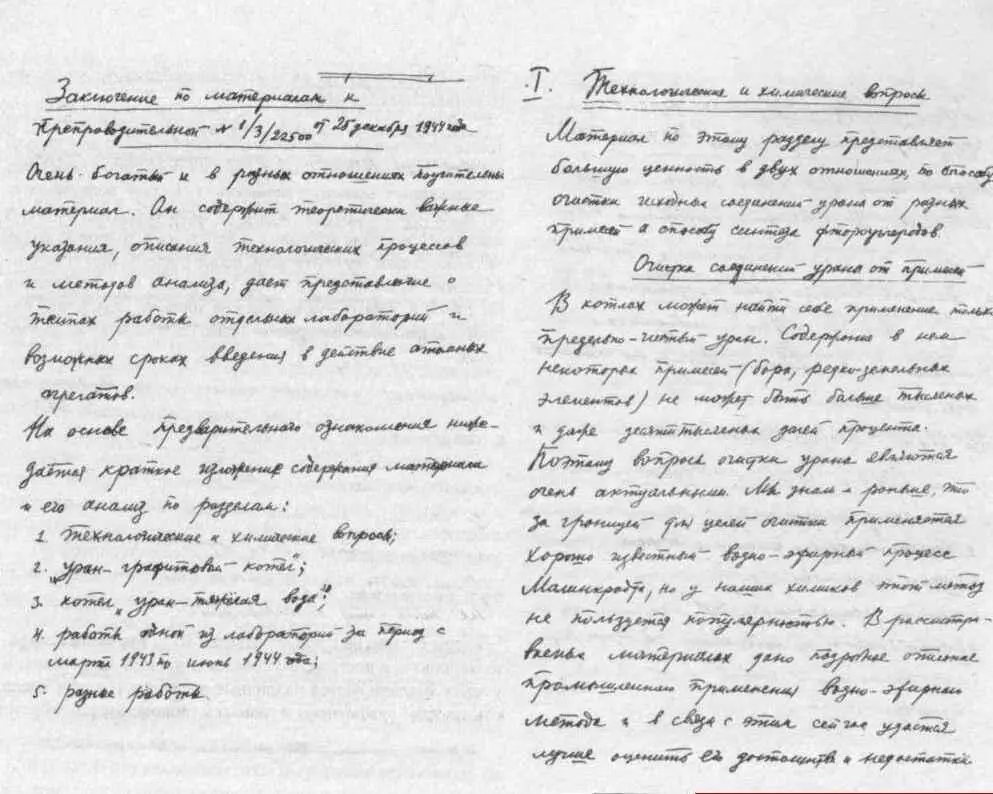 Заключение по материалам к
Препроводительной № 1/3/22500 от 25 декабря 1944 года
Очень богатый и в разных отношениях поучительный
материал. Он содержит теоретически важные
указания, описания технологических процессов
и методов анализа, дает представление о
темпах работы отдельных лабораторий и
возможных сроках введения в действие атомных
агрегатов.
На основе предварительного ознакомления ниже
дается краткое изложение содержания материала
и его анализ по разделам:
1. Технологические и химические вопросы;
2. „уран-графитовый котел";
3. котел „уран-тяжелая вода";
4. работы одной из лабораторий за период с
марта 1943 по июнь 1944 года;
5. разные работы
I. Технологические и химические вопросы
Материал по этому разделу представляет
большую ценность в двух отношениях, по способу
очистки исходных соединений урана от разных
примесей и способу синтеза фтороуглеродов.
Очистка соединений урана от примесей
В котлах может найти себе применение только
предельно-чистый уран. Содержание в нем
некоторых примесей (бора, редко-земельных
элементов) не может быть больше тысячных
и даже десятитысячных долей процента.
Поэтому вопросы очистки урана являются
очень актуальными. Мы знали и раньше, что
за границей для целей очистки применяется
хорошо известный водно-эфирный процесс
Малинкродта, но у наших химиков этот метод
не пользуется популярностью. В рассматри-
ваемых материалах дано подробное описание
промышленного применения водно-эфирного
метода и в связи с этим сейчас удастся
лучше оценить его достоинства и недостатки